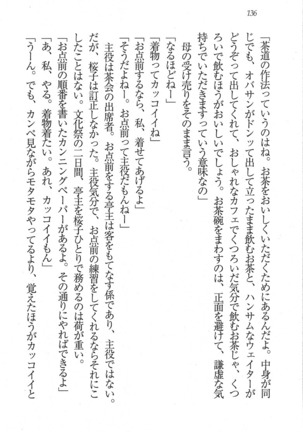 136
「茶道の作法っていうのはね。お茶をおいしくいただくためにあるんだよ。中身が同
じでも、オバサンがドンって出してよこす立ったまま飲むお茶と、ハンサムなウェイターが
どうぞって出してくれて、おしゃれなカフェでくつろいだ気分で飲むお茶じゃ、くつ
ろいで飲むほうがおいしいでしょう。お茶碗をまわすのは、正面を避けて、謙虚な気
持ちでいただきますっていう意味なの」
母の受け売りをそのまま言う。
「なるほどねー」
「着物ってカッコイイね」
「お点前するなら、私、着せてあげるよ」
「そうだよねー。お点前って主役だもんねー」
主役は茶会の出席者。お点前をする亭主は客をもてなす係であり、主役ではない。
だが、桜子は訂正しなかった。主役気分で、お点前の練習をしてくれるならそれにこ
したことはない。文化祭の二日間、亭主を桜子ひとりで務めるのは荷が重い。
「お点前の順番を書いたカンニングペーパーがあるよ。その通りにやればできるよ」
「あ、私、やる。着物着たい。あれ、カッコイイもん」
「うーん。でも、カンペ見ながらモタモタやってるより、覚えたほうがカッコイイと